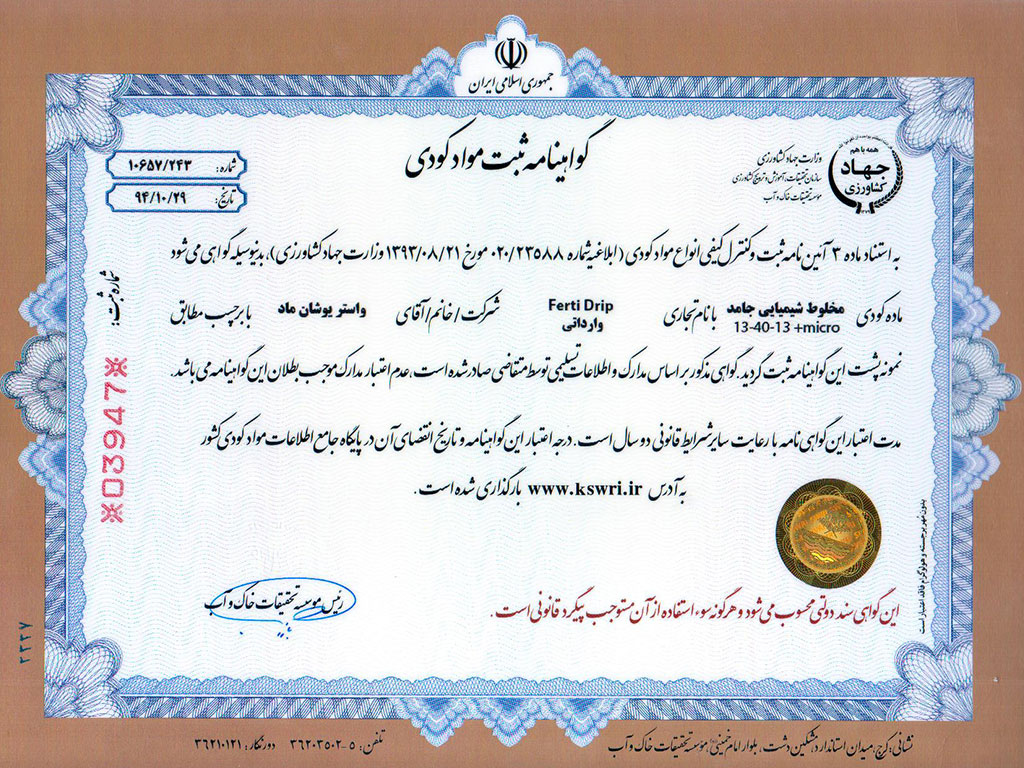 جمهوری اسلامی ایران
همه با هم
جهاد
کشاورزی
وزارت جهاد کشاورزی
سازمان تحقیقات، آموزش و ترویج کشاورزی
موسسه تحقیقات خاک و آب
گواهینامه ثبت مواد کودی
شماره: ۱۰۶۵۷/۲۴۳
تاریخ: ۹۴/۱۰/۲۹
به استناد ماده ۳ آئین نامه ثبت و کنترل کیفی انواع مواد کودی (ابلاغیه شماره ۰۲۰/۲۳۵۸۸ مورخ ۱۳۹۳/۰۸/۲۱ وزارت جهاد کشاورزی)، بدینوسیله گواهی می شود
ماده کودی مخلوط شیمیایی جامد 13-40-13 +micro با نام تجاری Ferti Drip وارداتی شرکت / خانم / آقای واستر پوشان ماد با برچسب مطابق
نمونه پشت این گواهینامه ثبت گردید. گواهی مذکور بر اساس مدارک و اطلاعات تسلیمی توسط متقاضی صادر شده است، عدم اعتبار مدارک موجب بطلان این گواهینامه می باشد.
مدت اعتبار این گواهی نامه با رعایت سایر شرایط قانونی دو سال است. درجه اعتبار این گواهینامه و تاریخ انقضای آن در پایگاه جامع اطلاعات مواد کودی کشور
به آدرس www.kswri.ir بارگذاری شده است.
شماره ثبت:
※03947※
بدون مهر برجسته و هولوگرام فاقد اعتبار است
رئیس موسسه تحقیقات خاک و آب
این گواهی سند دولتی محسوب می شود و هرگونه سوء استفاده از آن مستوجب پیگرد قانونی است.
۲۲۲۷
نشانی: کرج، میدان استاندارد، مشکین دشت، بلوار امام خمینی، موسسه تحقیقات خاک و آب
تلفن: ۵-۳۶۲۰۳۵۰۲ دورنگار: ۳۶۲۱۰۱۲۱